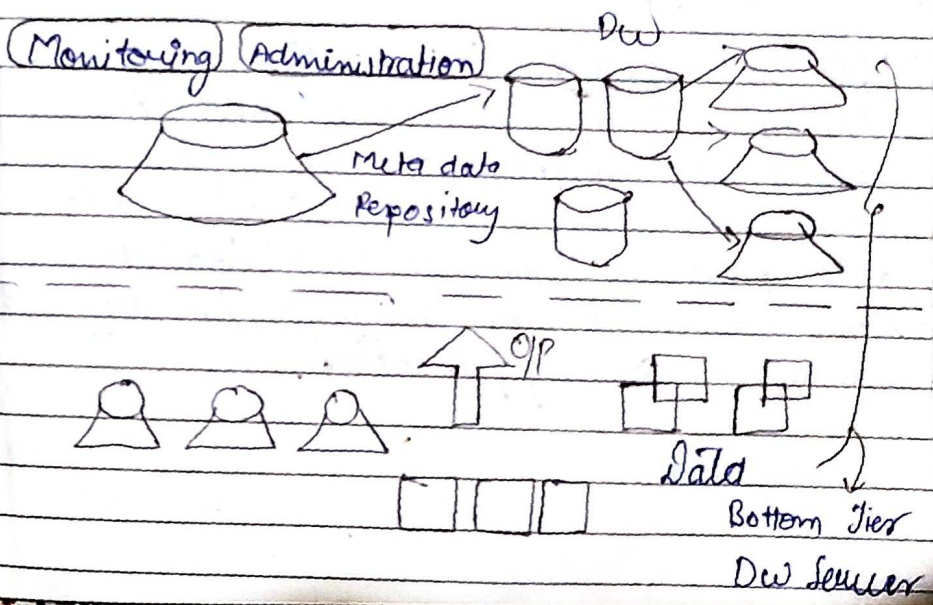 Monitoring Administration
DW
Meta data
Repository
O/P
Data
Bottom Tier
DW Server